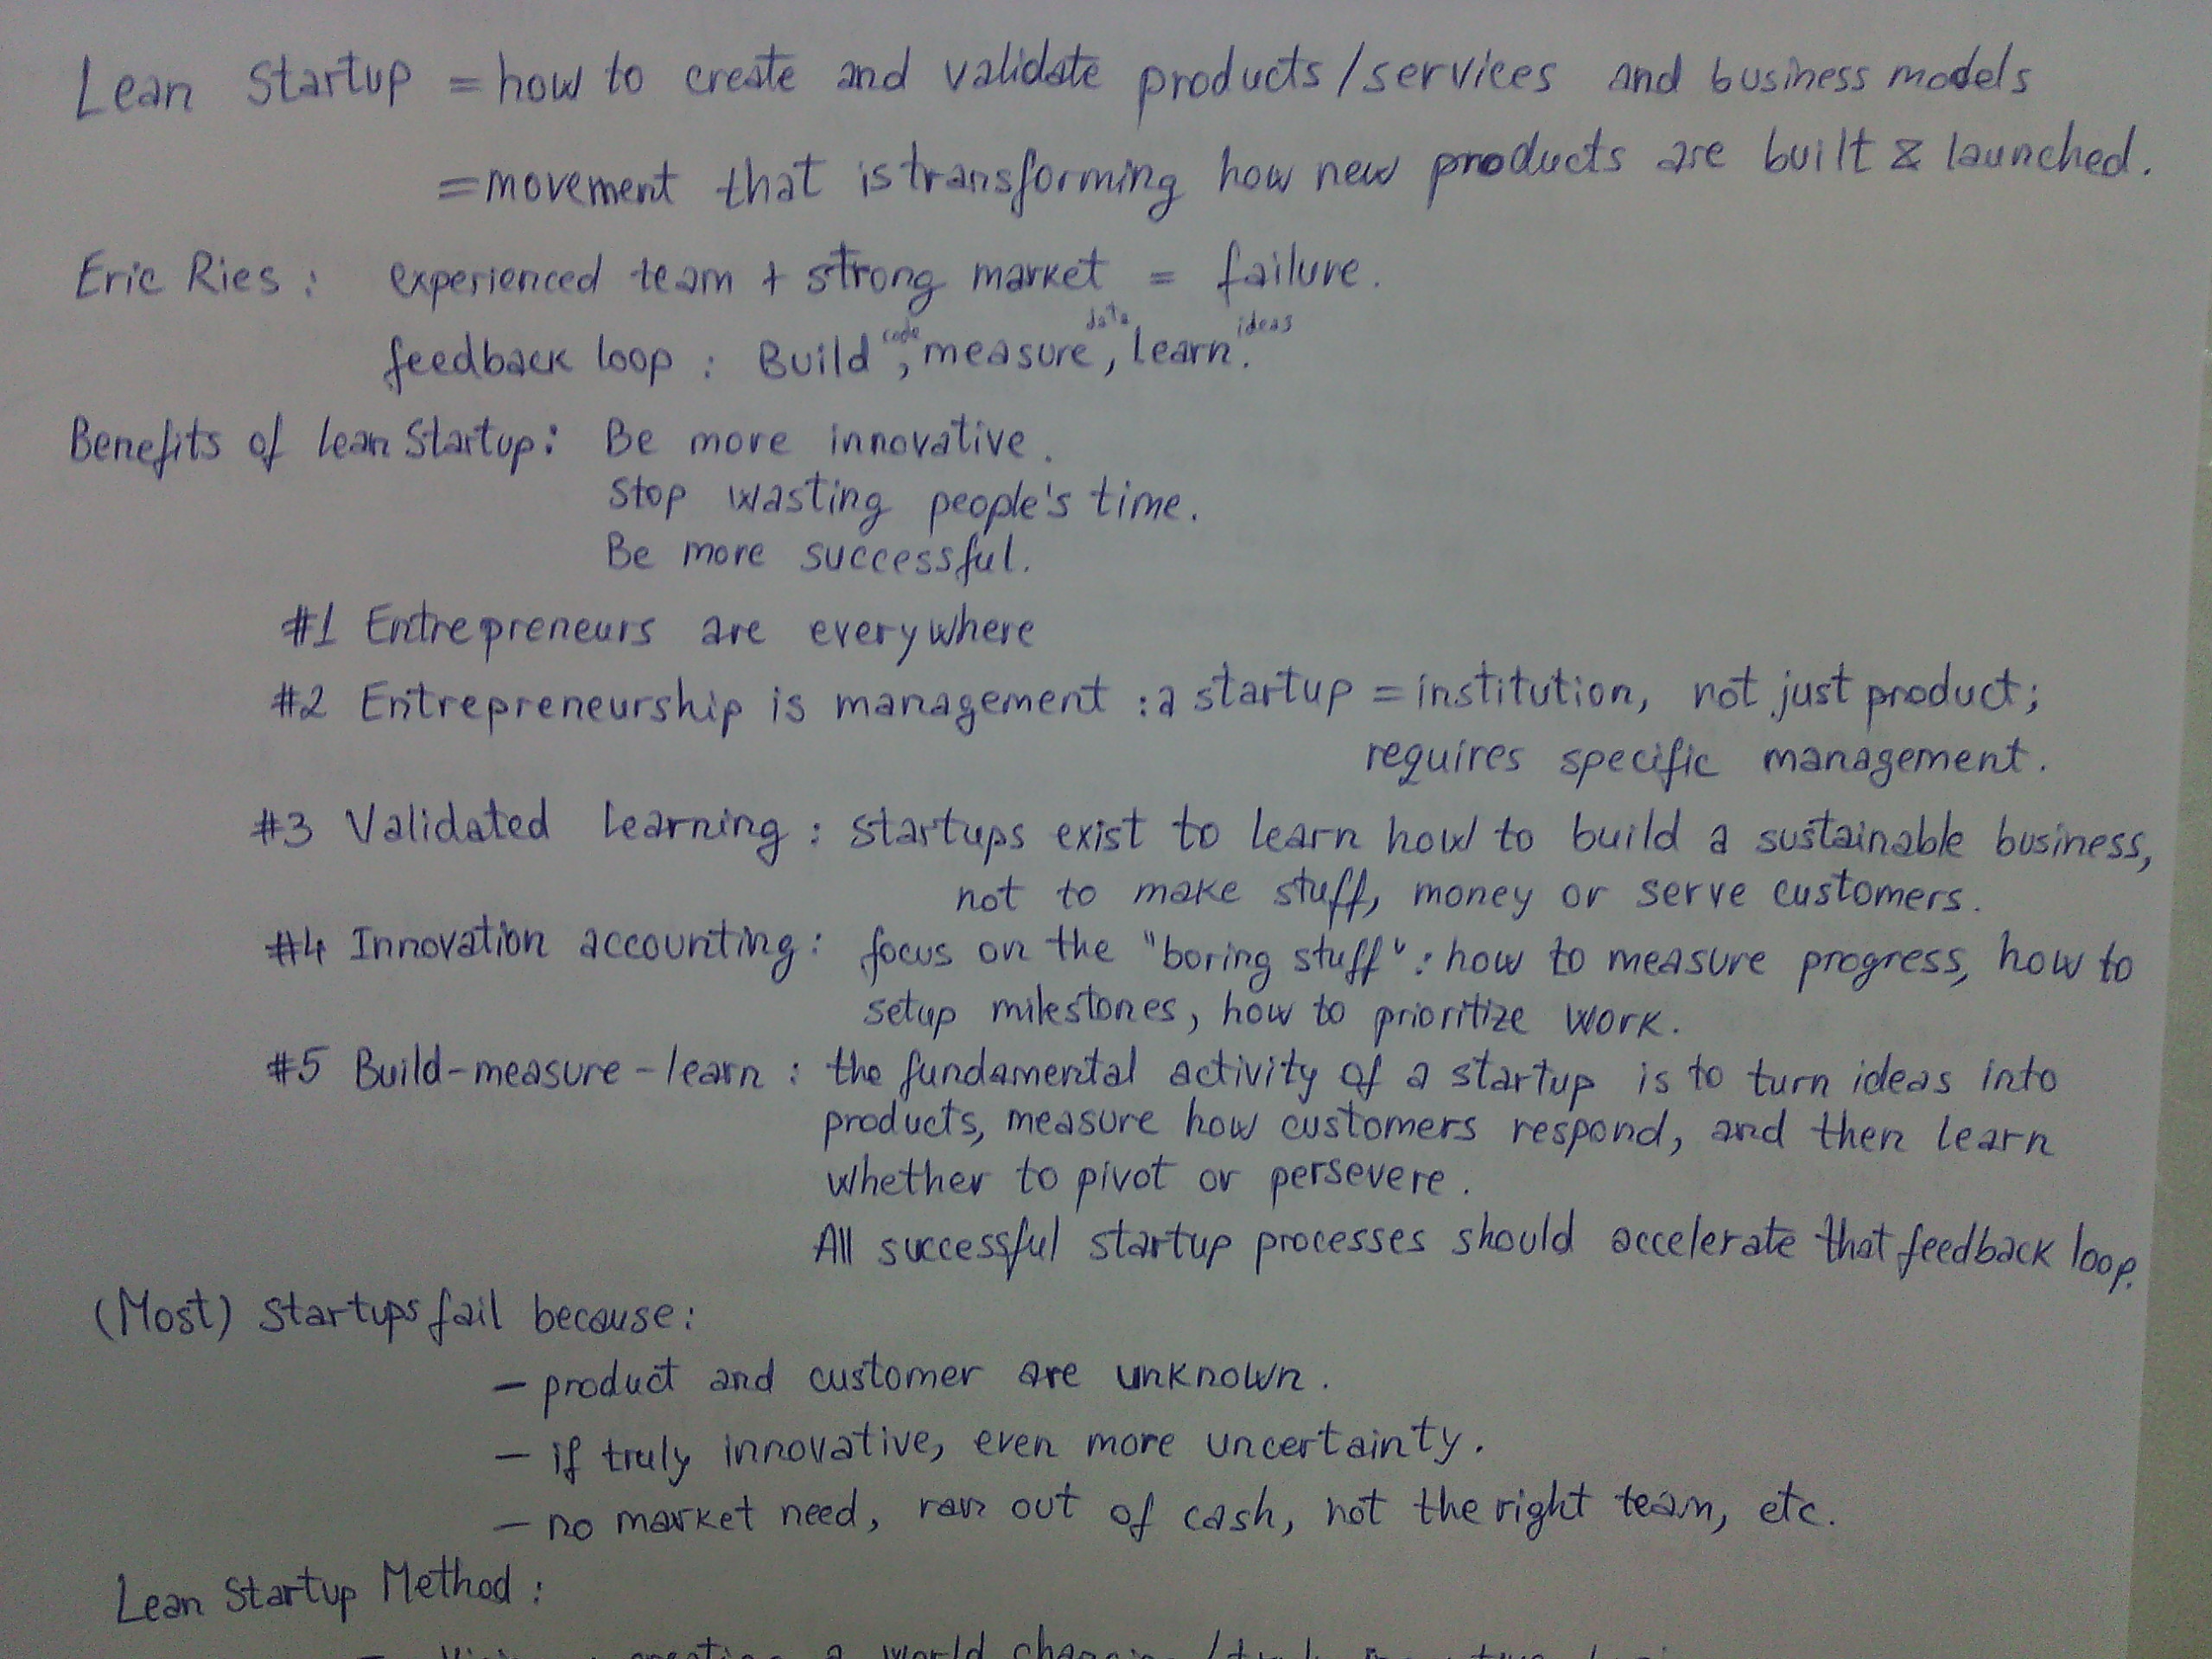 Lean Startup = how to create and validate products/services and business models
= movement that is transforming how new products are built & launched.
Eric Ries: experienced team + strong market = failure.
code data ideas
feedback loop: Build, measure, learn.
Benefits of lean Startup: Be more innovative.
Stop wasting people's time.
Be more successful.
#1 Entrepreneurs are everywhere
#2 Entrepreneurship is management: a startup = institution, not just product;
requires specific management.
#3 Validated learning: startups exist to learn how to build a sustainable business,
not to make stuff, money or serve customers.
#4 Innovation accounting: focus on the "boring stuff": how to measure progress, how to
setup milestones, how to prioritize work.
#5 Build-measure-learn: the fundamental activity of a startup is to turn ideas into
products, measure how customers respond, and then learn
whether to pivot or persevere.
All successful startup processes should accelerate that feedback loop.
(Most) Startups fail because:
- product and customer are unknown.
- if truly innovative, even more uncertainty.
- no market need, ran out of cash, not the right team, etc.
Lean Startup Method:
creating a world changing/truly